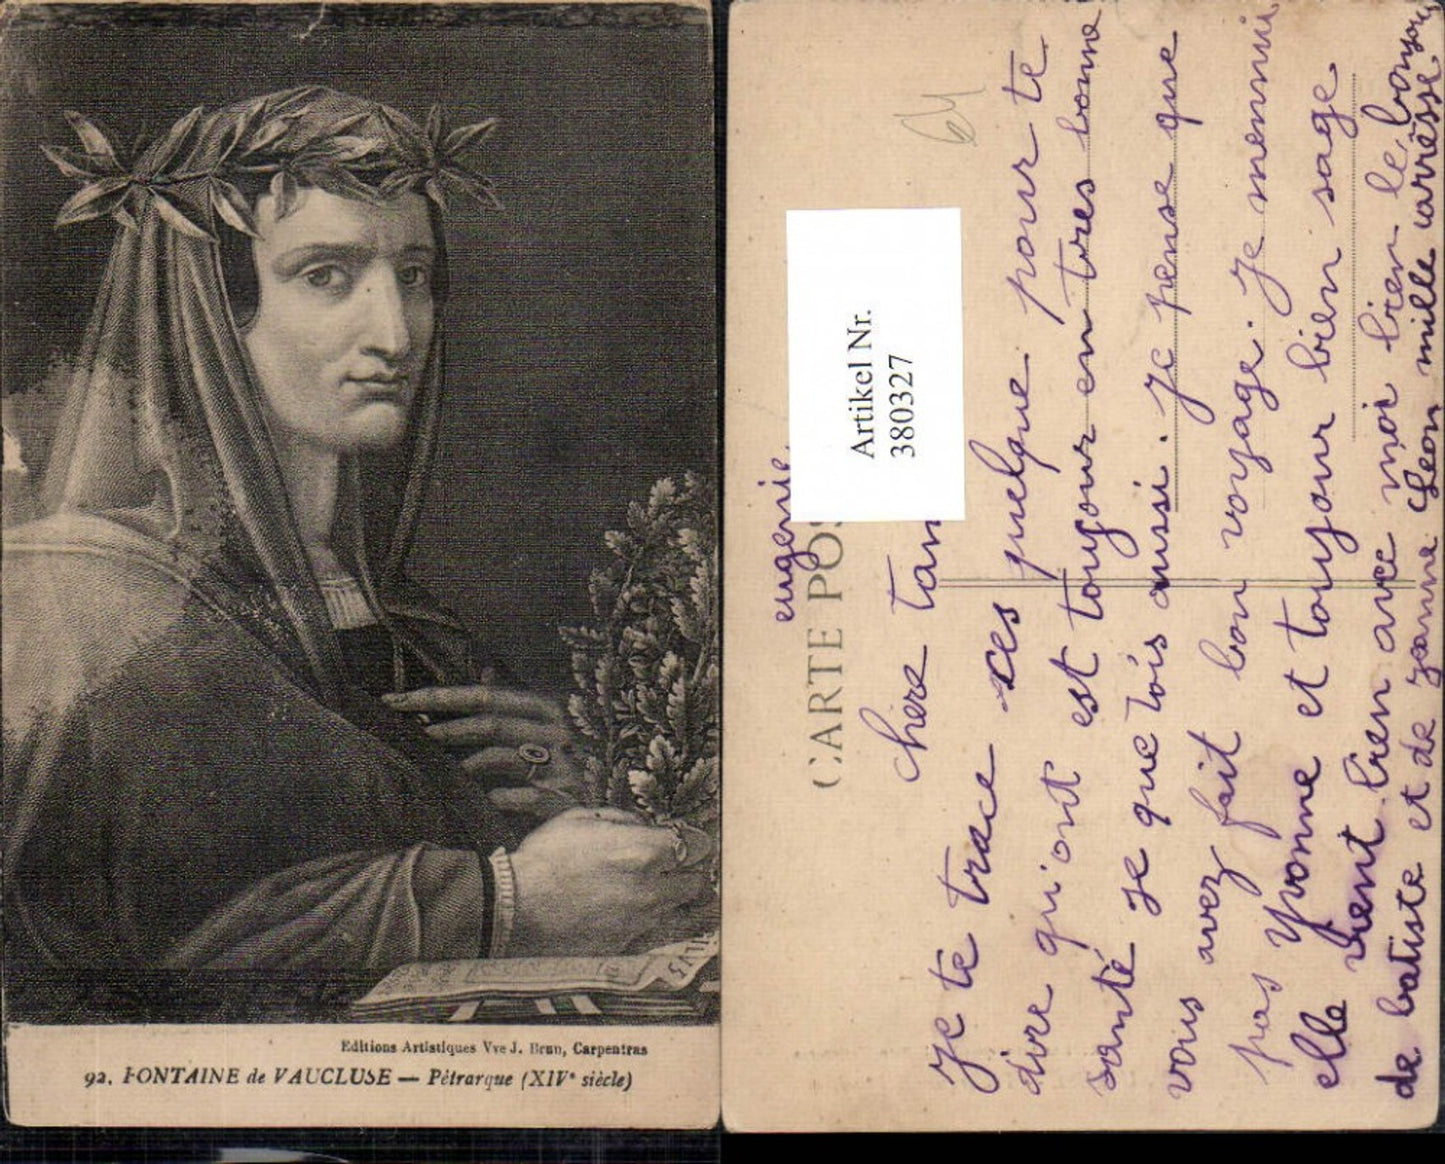 Editions Artistiques Vve J. Brun, Carpentras
92. FONTAINE de VAUCLUSE — Pétrarque (XIVe siècle)
Artikel Nr.
380327
eugenie
CARTE POS
chere tan
je te trace ces quelque pour te
dire qu'ont est toujour en tres bonne
santé je que tois aussi. je pense que
vous avez fait bon voyage. je mennui
pas yvonne et toujour bien sage
elle vient bien avec moi bien le bonjour
de batiste et de jeanne Leon mille carresse